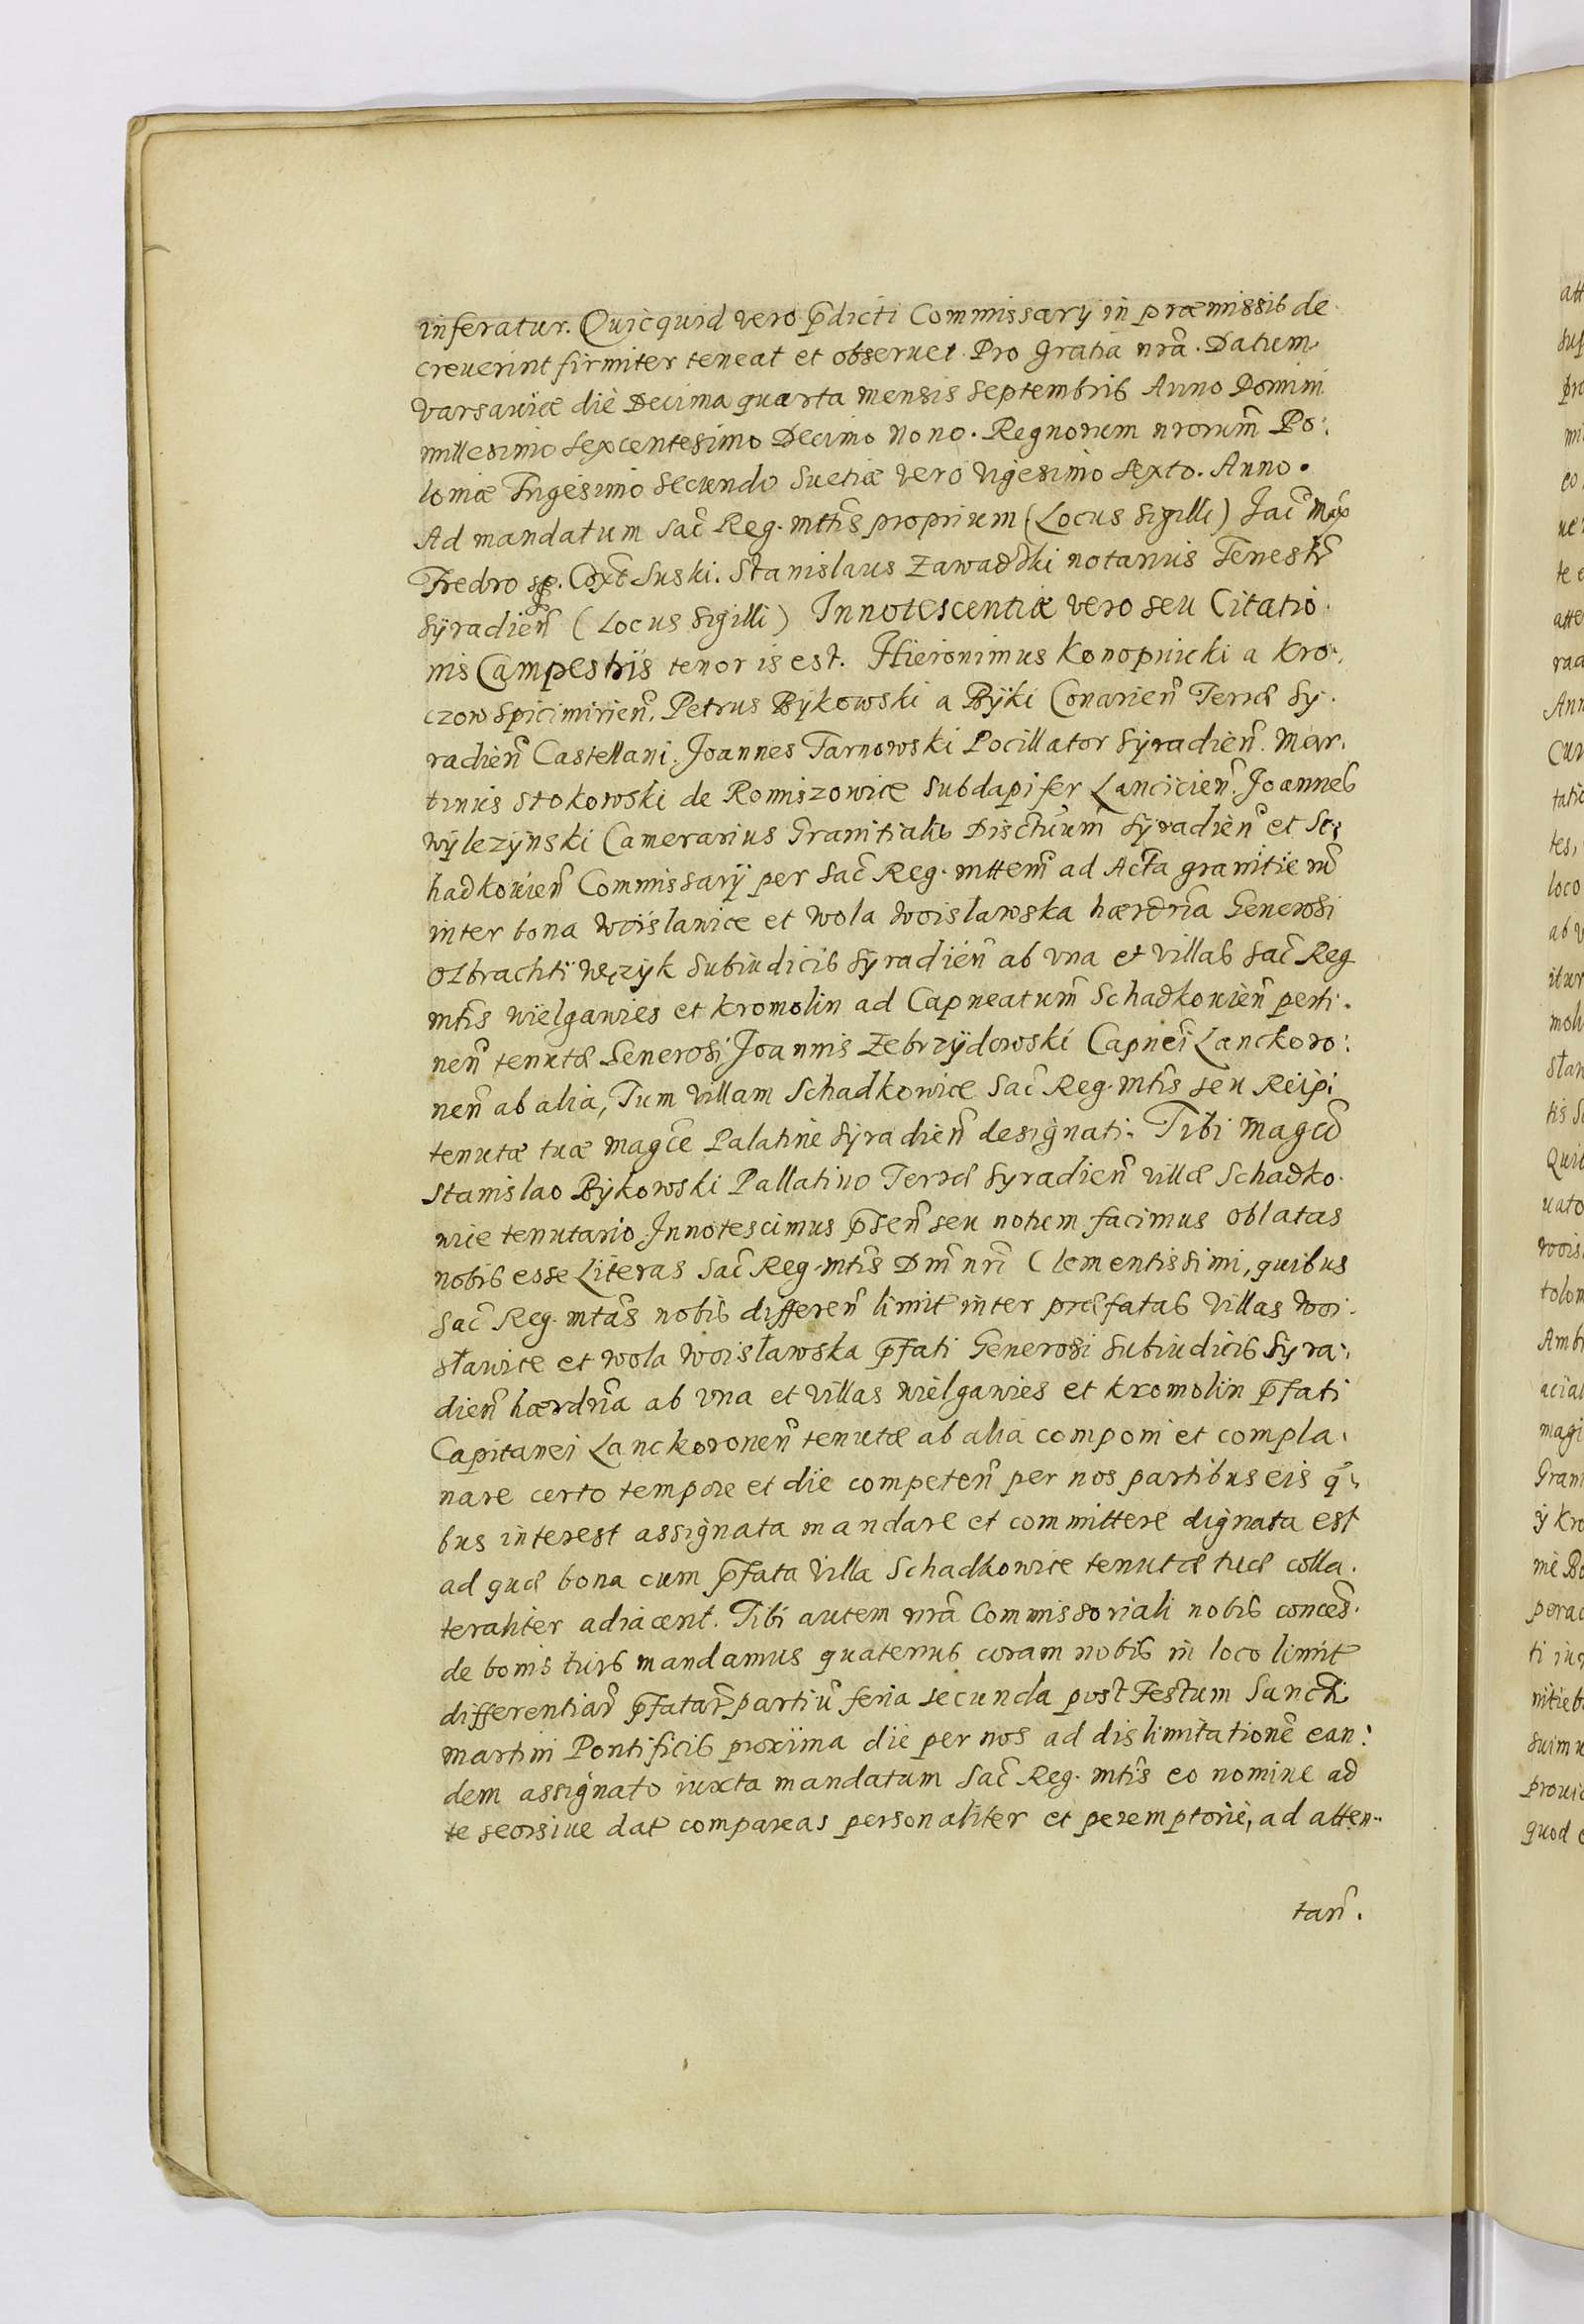 inferatur. Quicquid vero p̃dicti Commissarÿ in præmissis de
creuerint firmiter teneat et obseruet. Pro gratia nrã. Datum
Varsauiæ die Decima quarta mensis septembris Anno Domini
millesimo sexcentesimo Decimo nono. Regnorum nrorum̃ Po:
loniæ Trigesimo secundo Suetiæ vero vigesimo sexto. Anno.
Ad mandatum Sac̃ Reg. mttis̃ proprium (Locus sigilli) Jac̃ Max
Fredro sp. Suski. Stanislaus Zawadzki notarius Terrestr̃
Sÿradien̄ (Locus Sigilli) Innotescentiæ vero seu Citatio
nis Campestris tenor is est. Hieronimus Konopnicki a Kro:
czow Spicimirien̄. Petrus Bÿkowski a Bÿki Conarien̄ Terræ Sÿ.
radien̄ Castellani. Joannes Tarnowski Pocillator Sÿradien̄. Mar.
tinus Stokowski de Romiszowice Subdapifer Lancicien̄. Joannes
Wÿlezÿnski Camerarius Granitialis Sÿradien̄ et Sc
hadkouien̄ Commissarÿ per Sac̃ Reg. mttem̃ ad Acta granitierũ
inter bona Woislawice et Wola Woislawska hærdria Generosi
Olbrachti Wężyk Subiudicis Sÿradien̄ ab vna et villas Sac̃ Reg
mtis̃ Wielgawies et Kromolin ad Capneatum̃ Schadkouien̄ perti.
nen̄ tenutæ Generosi Joannis Zebrzÿdowski Capnei Lanckoro:
nen̄ ab alia, Tum villam Schadkowice Sac̃ Reg. mtis̃ seu Reipi
tenutæ tuæ magce Palatine Sÿradien̄ designati. Tibi magco
Stanislao Bÿkowski Pallatino Terræ Syradien̄ villæ Schadko.
wice tenutario Innotescimus p̃sen̄ seu notum facimus oblatas
nobis esse Literas Sac̃ Reg. mtis̃ Dm̃ nrĩ Clementissimi, quibus
Sac̃ Reg. mtas̃ nobis differen̄ limit inter præfatas villas Woi.
sławice et Wola Woisławska p̃fati Generosi Subiudicis Syra:
dien̄ hærdria ab vna et villas Wielgawies et Kromolin p̃fati
Capitanei Lanckoronen̄ tenutæ ab alia componi et compla:
nare certo tempore et die competen̄ per nos partibus eis q̃:
bus interest assignata mandare et committere dignata est
ad quæ bona cum p̃fata villa Schadkowice tenutæ tuæ colla.
teraliter adiacent. Tibi autem nrã Commissoriali nobis conces̃.
de bonis tuis mandamus quatenus coram nobis in loco limit
differentiar̃ p̃fatar̃ partiũ feria secunda post Festum Sancti
Martini Pontificis proxima die per nos ad dislimitationẽ ean:
dem assignato iuxta mandatum Sac̃ Reg. mtis̃ eo nomine ad
te seorsiue dat compareas personaliter et peremptorie, ad atten..
tan̄.